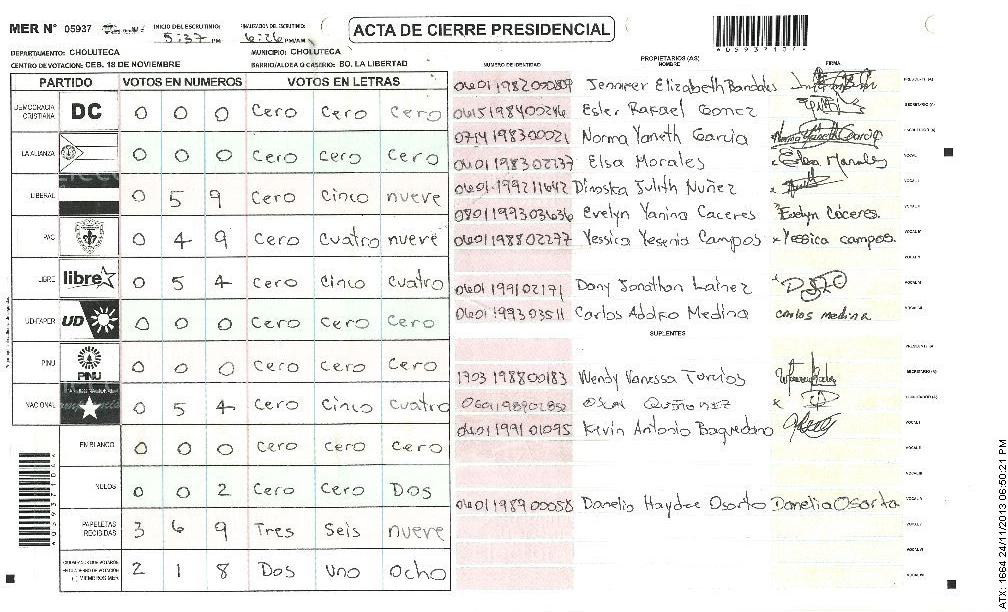 MER N° 05937
INICIO DEL ESCRUTINIO: 5:37 PM
FINALIZACION DEL ESCRUTINIO: 6:26 PM/AM
ACTA DE CIERRE PRESIDENCIAL
DEPARTAMENTO: CHOLUTECA
MUNICIPIO: CHOLUTECA
CENTRO DE VOTACION: CEB. 18 DE NOVIEMBRE
BARRIO/ALDEA O CASERIO: BO. LA LIBERTAD
PARTIDO VOTOS EN NUMEROS VOTOS EN LETRAS
DEMOCRACIA CRISTIANA DC 0 0 0 Cero Cero Cero
LA ALIANZA 0 0 0 Cero Cero Cero
LIBERAL 0 5 9 Cero Cinco nueve
PAC 0 4 9 Cero Cuatro nueve
LIBRE libre 0 5 4 Cero Cinco Cuatro
UD-FAPER UD 0 0 0 Cero Cero Cero
PINU PINU 0 0 0 Cero Cero Cero
NACIONAL 0 5 4 Cero Cinco Cuatro
EN BLANCO 0 0 0 Cero Cero Cero
NULOS 0 0 2 Cero Cero Dos
PAPELETAS RECIBIDAS 3 6 9 Tres Seis nueve
2 1 8 Dos uno ocho
NUMERO DE IDENTIDAD
PROPIETARIOS (AS)
NOMBRE
FIRMA
Jennifer Elizabeth
0615198400246 Ester Rafael
0714198300021 Norma Yaneth Garcia
0601198302237 Elsa Morales Elsa Morales
0601-199211642 Dinoska Julith Nuñez
0801199303636 Evelyn Yanina Caceres Evelyn Cáceres.
0601198802277 Yessica Yesenia Campos Yessica campos.
0601199102171 Dany Jonathan Lainez
0601199303511 Carlos Adolfo Medina carlos medina
SUPLENTES
1703198800183 Wendy Vanessa Turcios
0601199101095 Kevin Antonio Baquedano
0601198900058 Danelia Haydee Osorto Danelia Osorto
A05937104
ATX: 1664 24/11/2013 06:50:21 PM